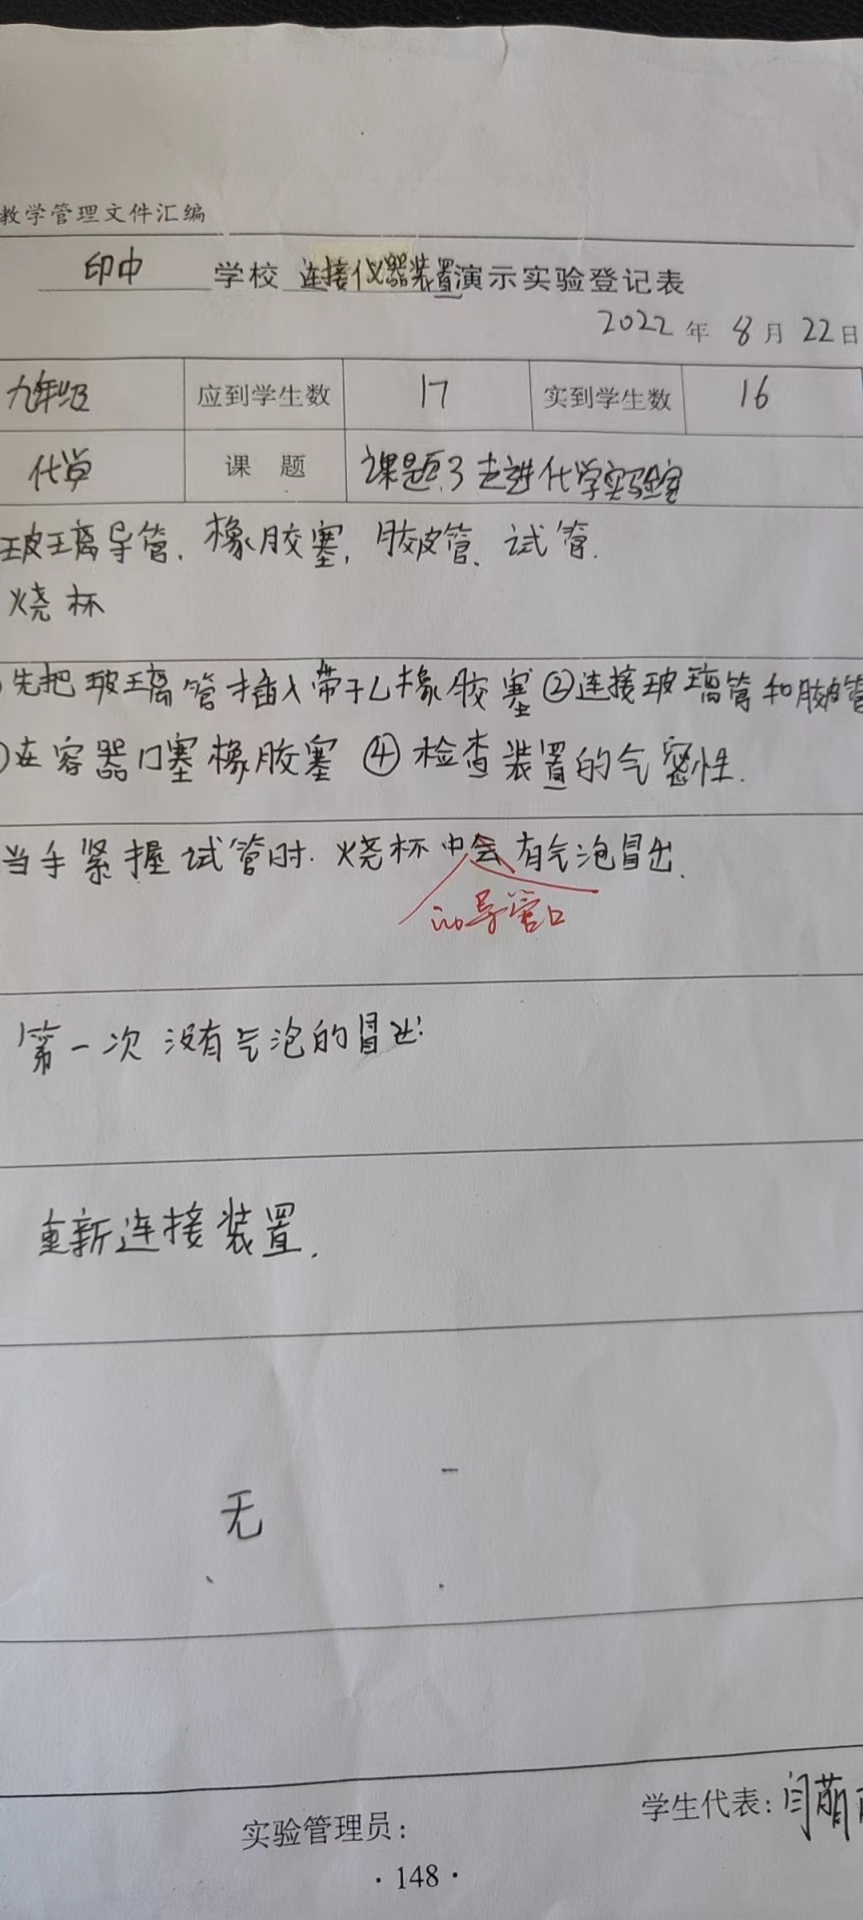 教学管理文件汇编
印中 学校 连接仪器装置演示实验登记表
2022 年 8 月 22 日
九年级 应到学生数 17 实到学生数 16
化学 课 题 课题3 走进化学实验室
玻璃导管、橡胶塞、胶皮管、试管、
烧杯
先把玻璃管插入带孔橡胶塞 ②连接玻璃管和胶皮管
在容器口塞橡胶塞 ④检查装置的气密性.
当手紧握试管时.烧杯中会有气泡冒出.
的导管口
第一次没有气泡的冒出.
重新连接装置.
无
学生代表:闫萌
实验管理员:
·148·